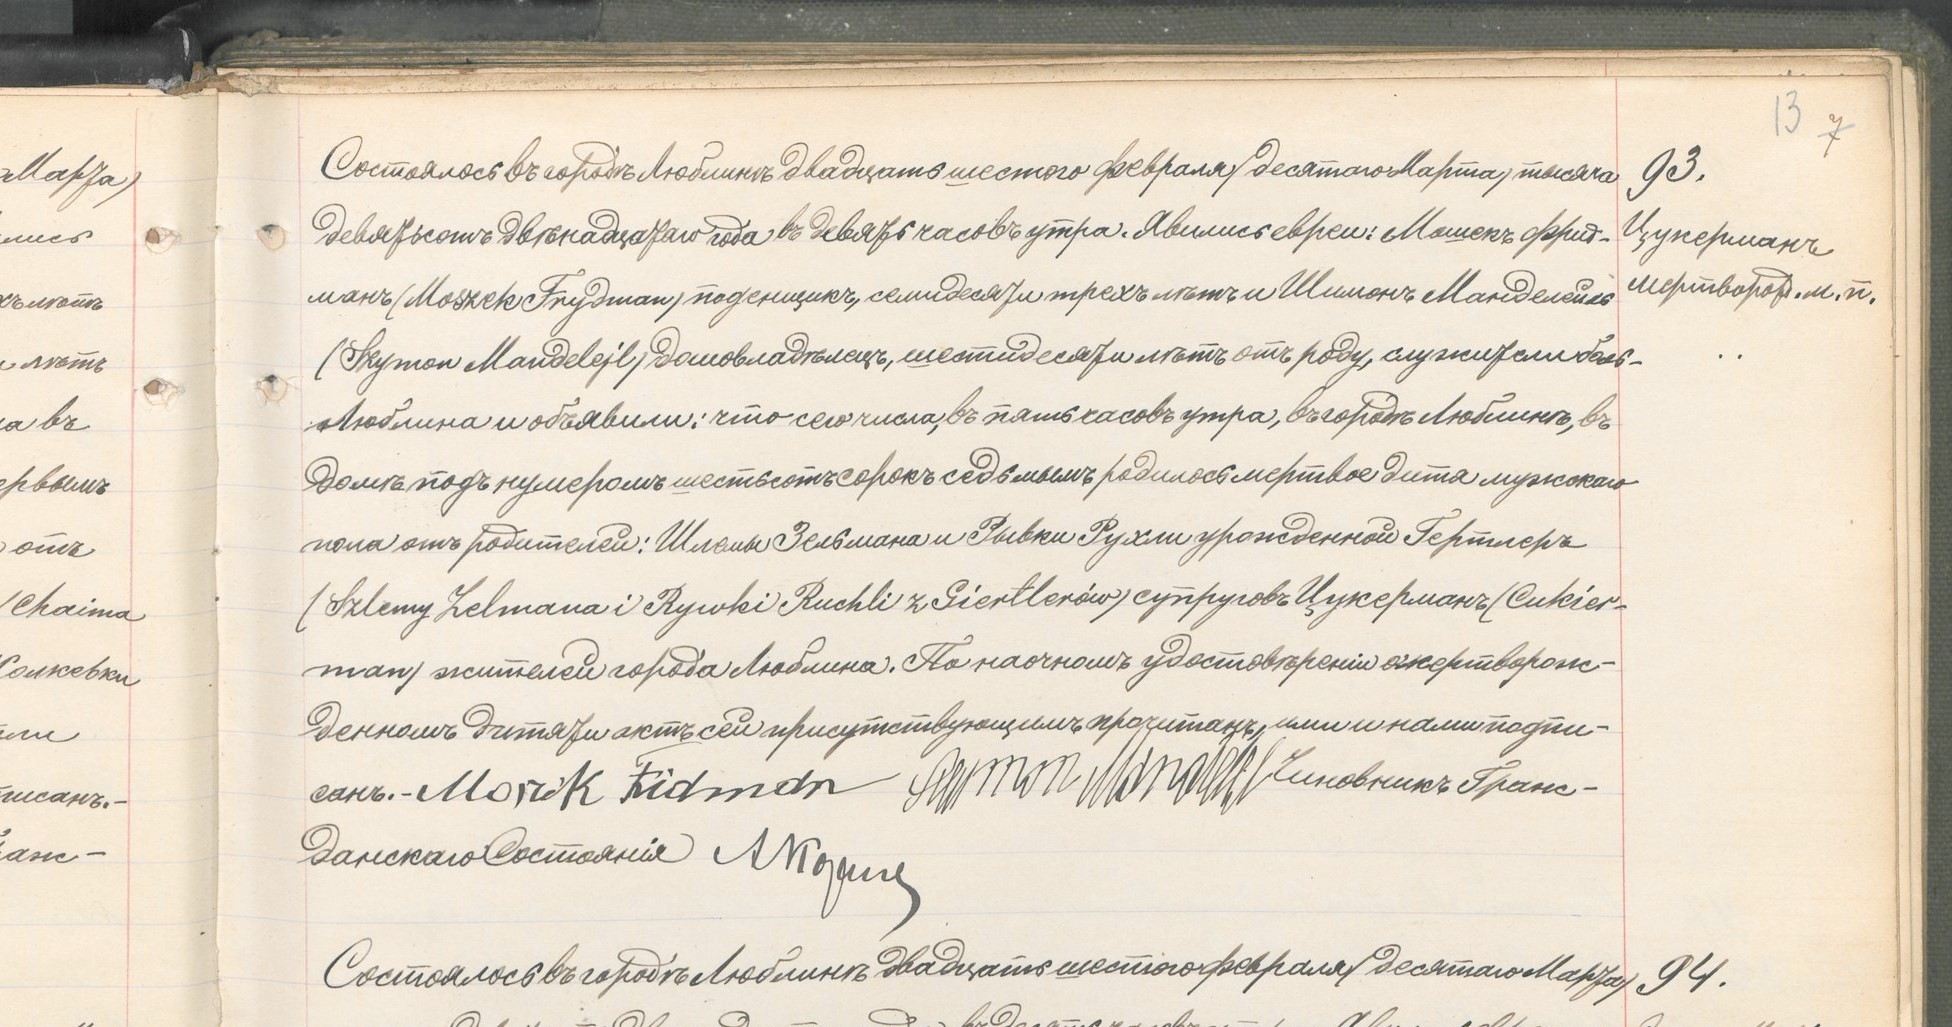 13 7
Состоялось въ городѣ Люблинѣ двадцать шестого февраля (десятаго Марта) тысяча
девятьсотъ двѣнадцатаго года въ девять часовъ утра. Явились евреи: Мошекъ Фрид-
манъ (Moszek Frydman) поденщикъ, семидесяти трехъ лѣтъ и Шимонъ Манделейль
(Szymon Mandelejl) домовладѣлецъ, шестидесяти лѣтъ отъ роду, служители божн.
Люблина и объявили: что сего числа, въ пять часовъ утра, въ городѣ Люблинѣ, въ
домѣ подъ нумеромъ шестьсотъ сорокъ седьмымъ родилось мертвое дитя мужскаго
пола отъ родителей: Шлемы Зельмана и Рывки Рухли урожденной Гертлеръ
(Szlemy Zelmana i Rywki Ruchli z Giertlerów) супруговъ Цукерманъ (Cukier-
man) жителей города Люблина. По наочномъ удостовѣреніи о мертворож-
денномъ дитяти актъ сей присутствующимъ прочитанъ, ими и нами подпи-
санъ.- Чиновникъ Граж-
данскаго Состоянія
93.
Цукерманъ
мертвород. м. п.
Состоялось въ городѣ Люблинѣ двадцать шестого февраля (десятаго Марта)
94.
Марта)
лѣтъ
а въ
ервымъ
отъ
(Chaima
писанъ.-
аж-